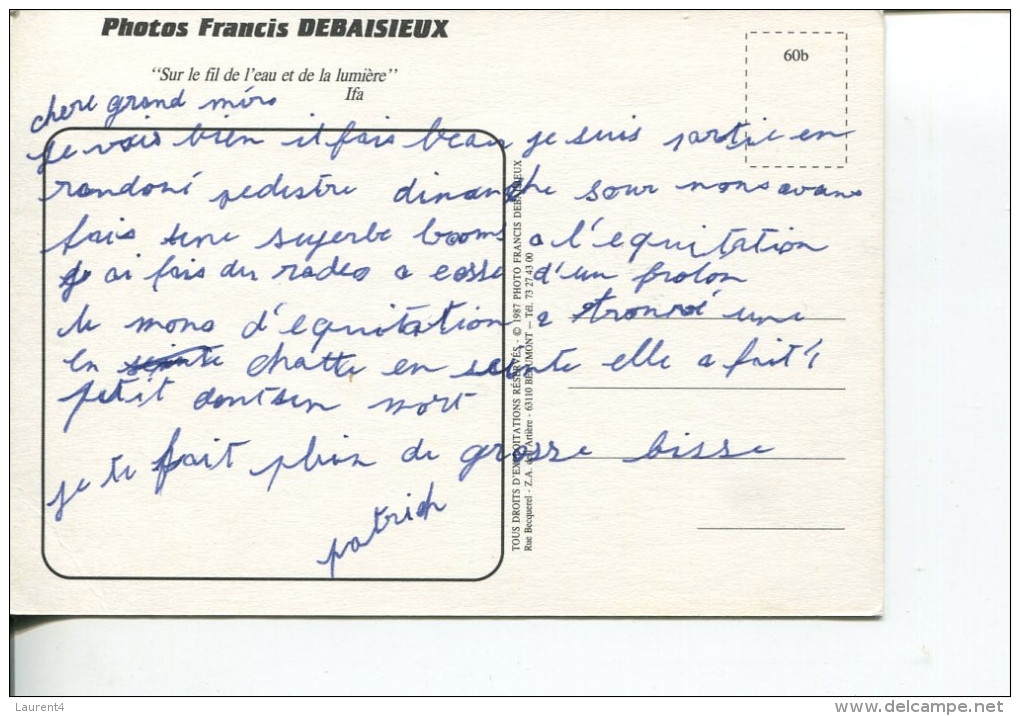 Photos Francis DEBAISIEUX
"Sur le fil de l'eau et de la lumière"
Ifa
60b
chere grand mére
Je vais bien it fais beau je suis partie en
randoné pedestre dimanche sour nons avans
fais une superbe booms a l'equitation
J ai fais du radeo a cosse d'un frolon
le mons d'equitation a tronvé une
en chatte en seinte elle a fait 4
petit dont un mort
je te fait plein de grosse bisse
patrich
TOUS DROITS D'EXPLOITATIONS RÉSERVÉS - © 1987 PHOTO FRANCIS DEBAISIEUX
Rue Becquerel - Z.A. de l'Artière - 63110 BEAUMONT — Tél. 73 27 43 00
Laurent4
www.delcampe.net